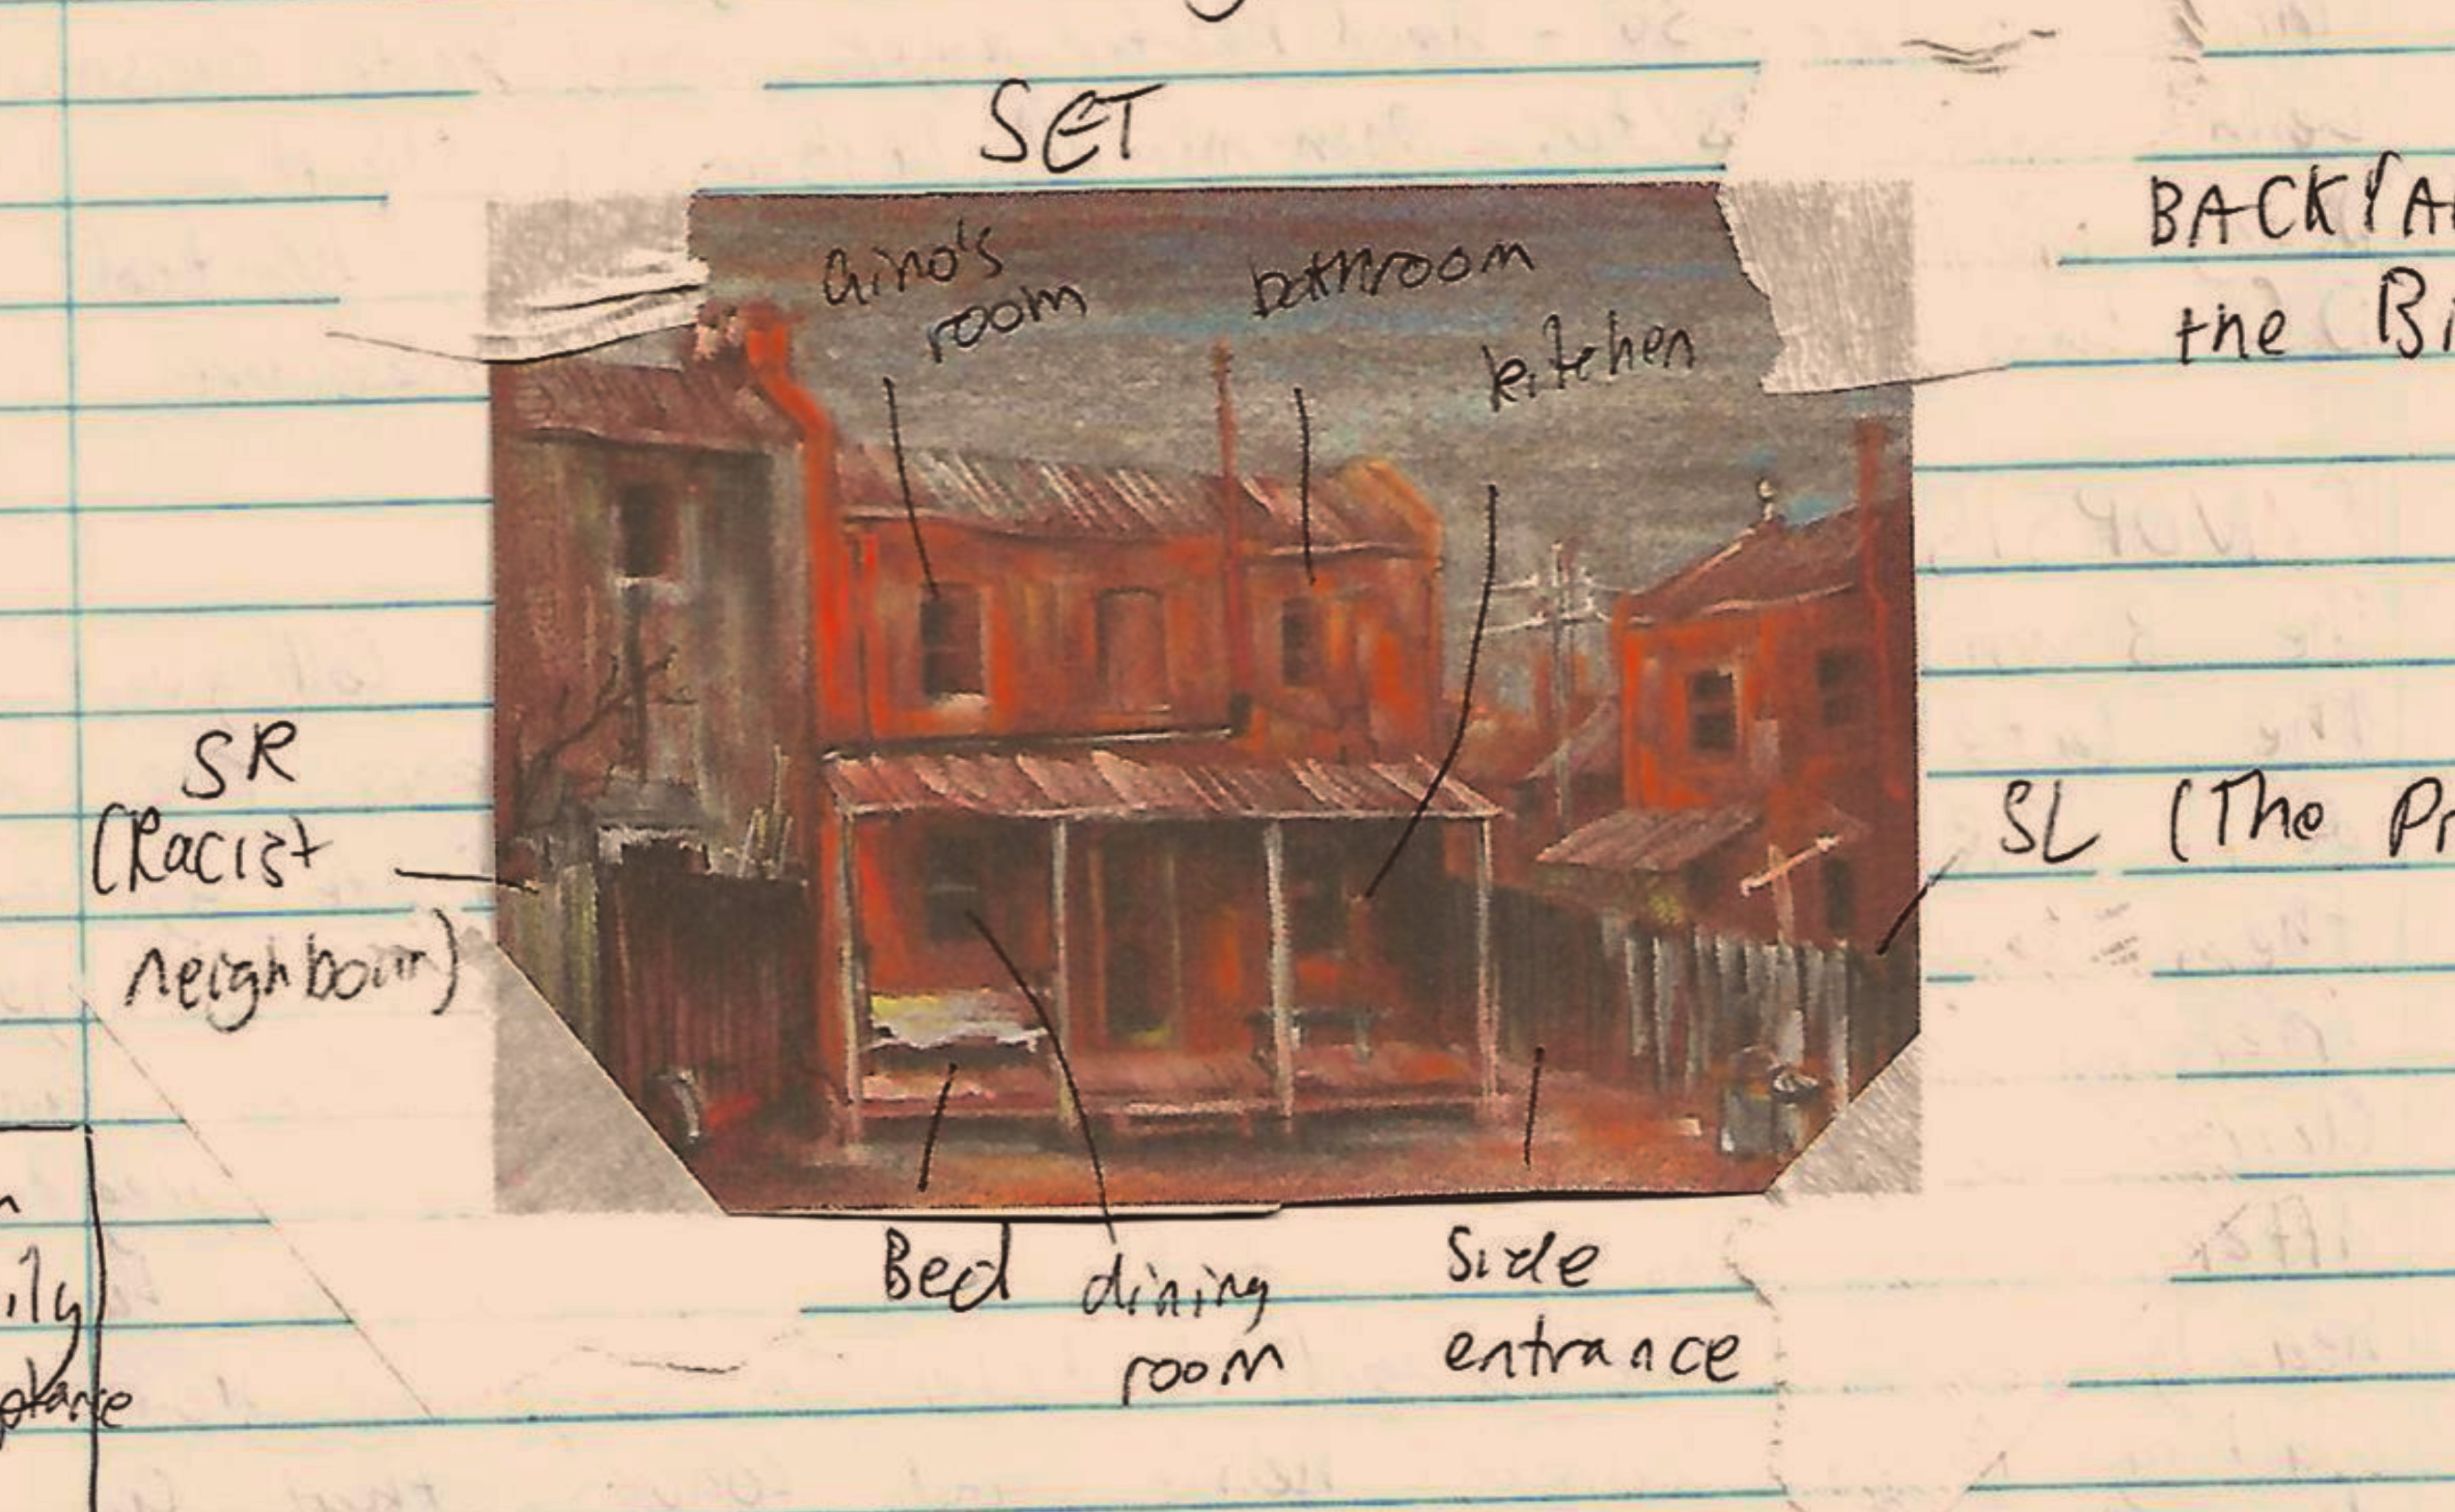 SET
BACKYA
the Bi
Gino's
room
bathroom
kitchen
SR
(Racist
neighbour)
SL (The Pr
Bed
dining
room
Side
entrance
ily